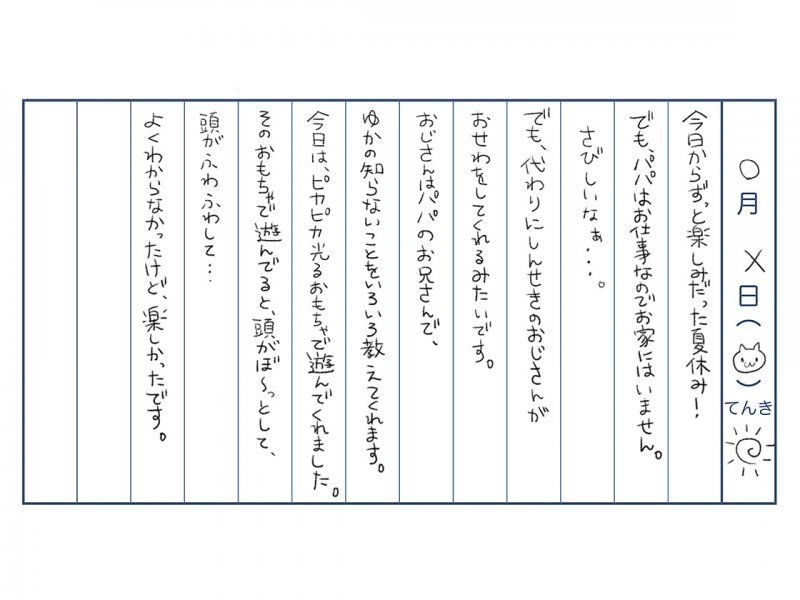 〇月 ✕日( )てんき
今日からずっと楽しみだった夏休み!
でも、パパはお仕事なのでお家にはいません。
さびしいなぁ・・・。
でも、代わりにしんせきのおじさんが
おせわをしてくれるみたいです。
おじさんはパパのお兄さんで、
ゆかの知らないことをいろいろ教えてくれます。
今日は、ピカピカ光るおもちゃで遊んでくれました。
そのおもちゃで遊んでると、頭がぼ~っとして、
頭がふわふわして・・・
よくわからなかったけど、楽しかったです。